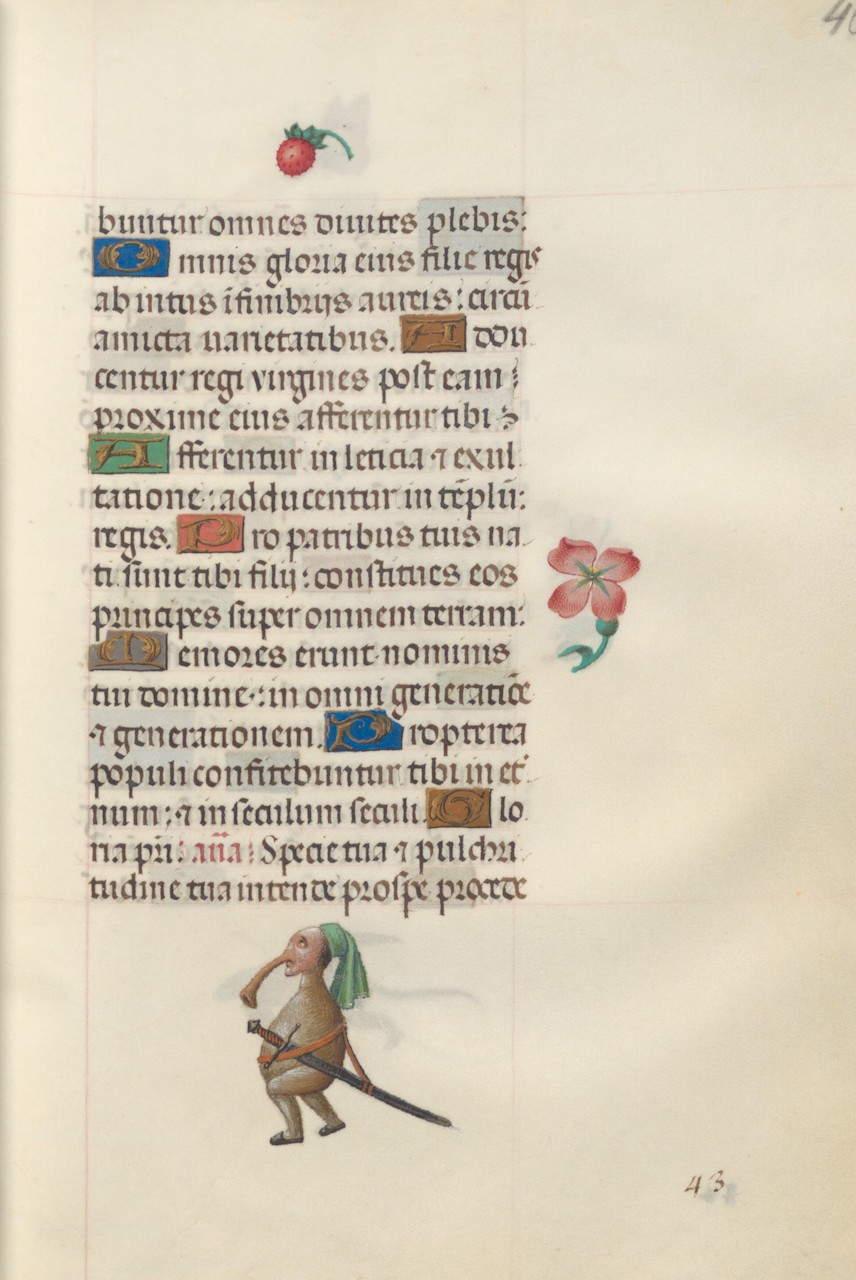 40
buntur omnes diuites plebis:
Omnis gloria eius filie regis
ab intus ī fimbrijs aureis: circū
amicta uarietatibus. Addu
centur regi virgines post eam:
proxime eius afferentur tibi:
Afferentur in leticia ⁊ exul
tatione: adducentur in tēplū:
regis. Pro patribus tuis na
ti sunt tibi filij: constitues eos
principes super omnem terram:
Memores erunt nominis
tui domine: in omni generatiōe
⁊ generationem. Propterea
populi confitebuntur tibi in et
num: ⁊ in seculum seculi. Glo
ria pri: aña: Specie tua ⁊ pulchri
tudine tua intende prospe procede
43